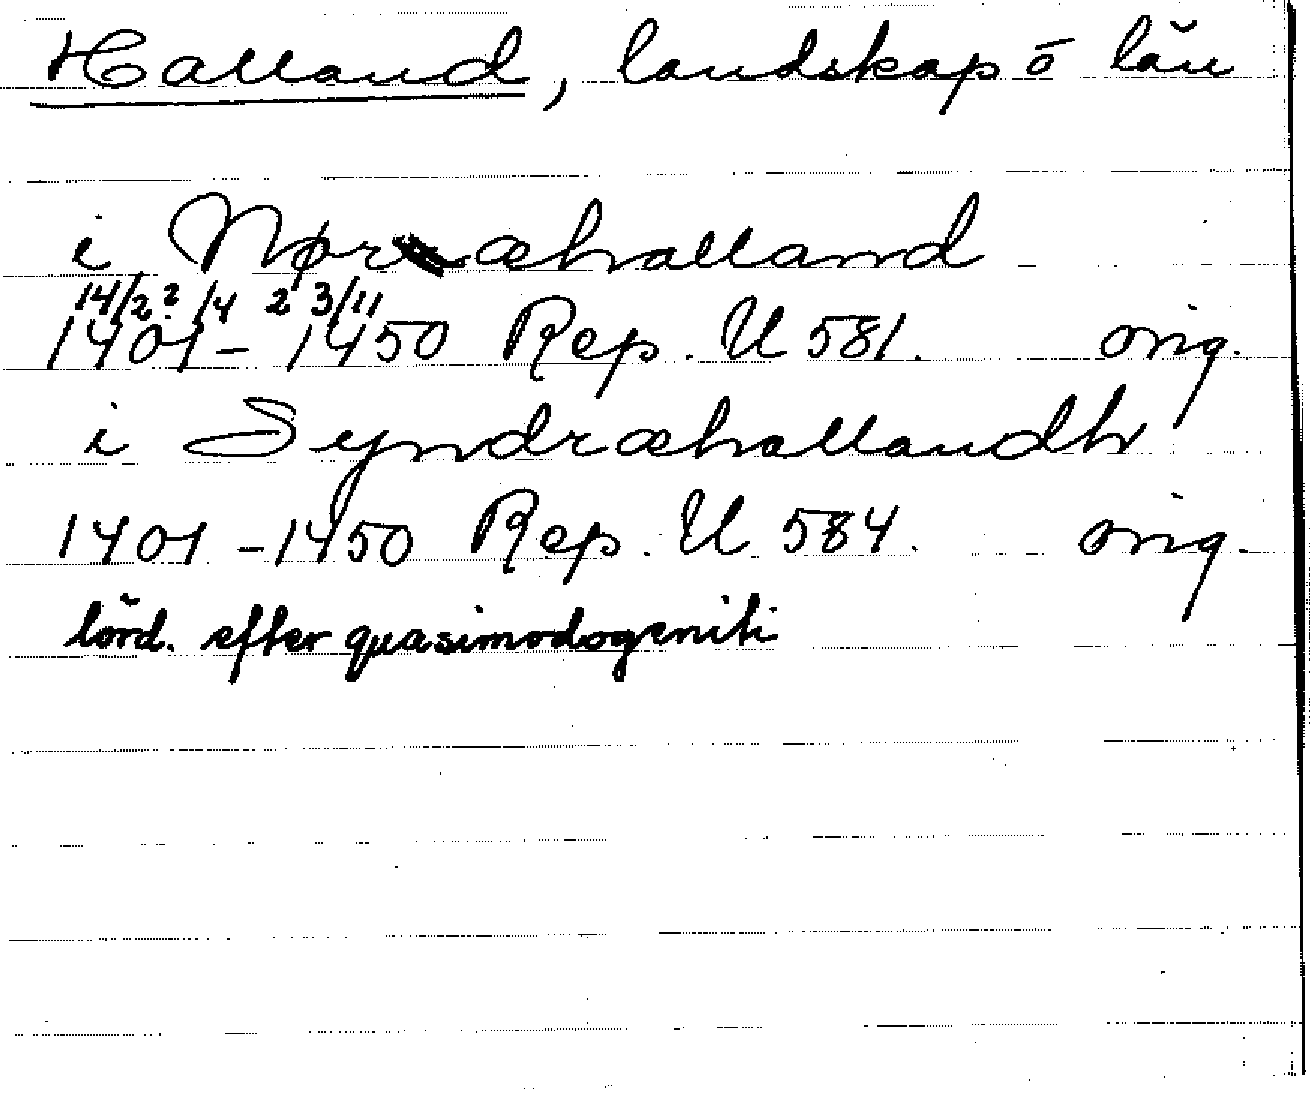 Halland, landskap o län
i Nørræhalland
14/2? /4 2 3/11
1401-1450 Rep. U 581. orig.
i Syndræhallandh
1401-1450 Rep. U 584. orig.
lörd. efter quasimodogeniti